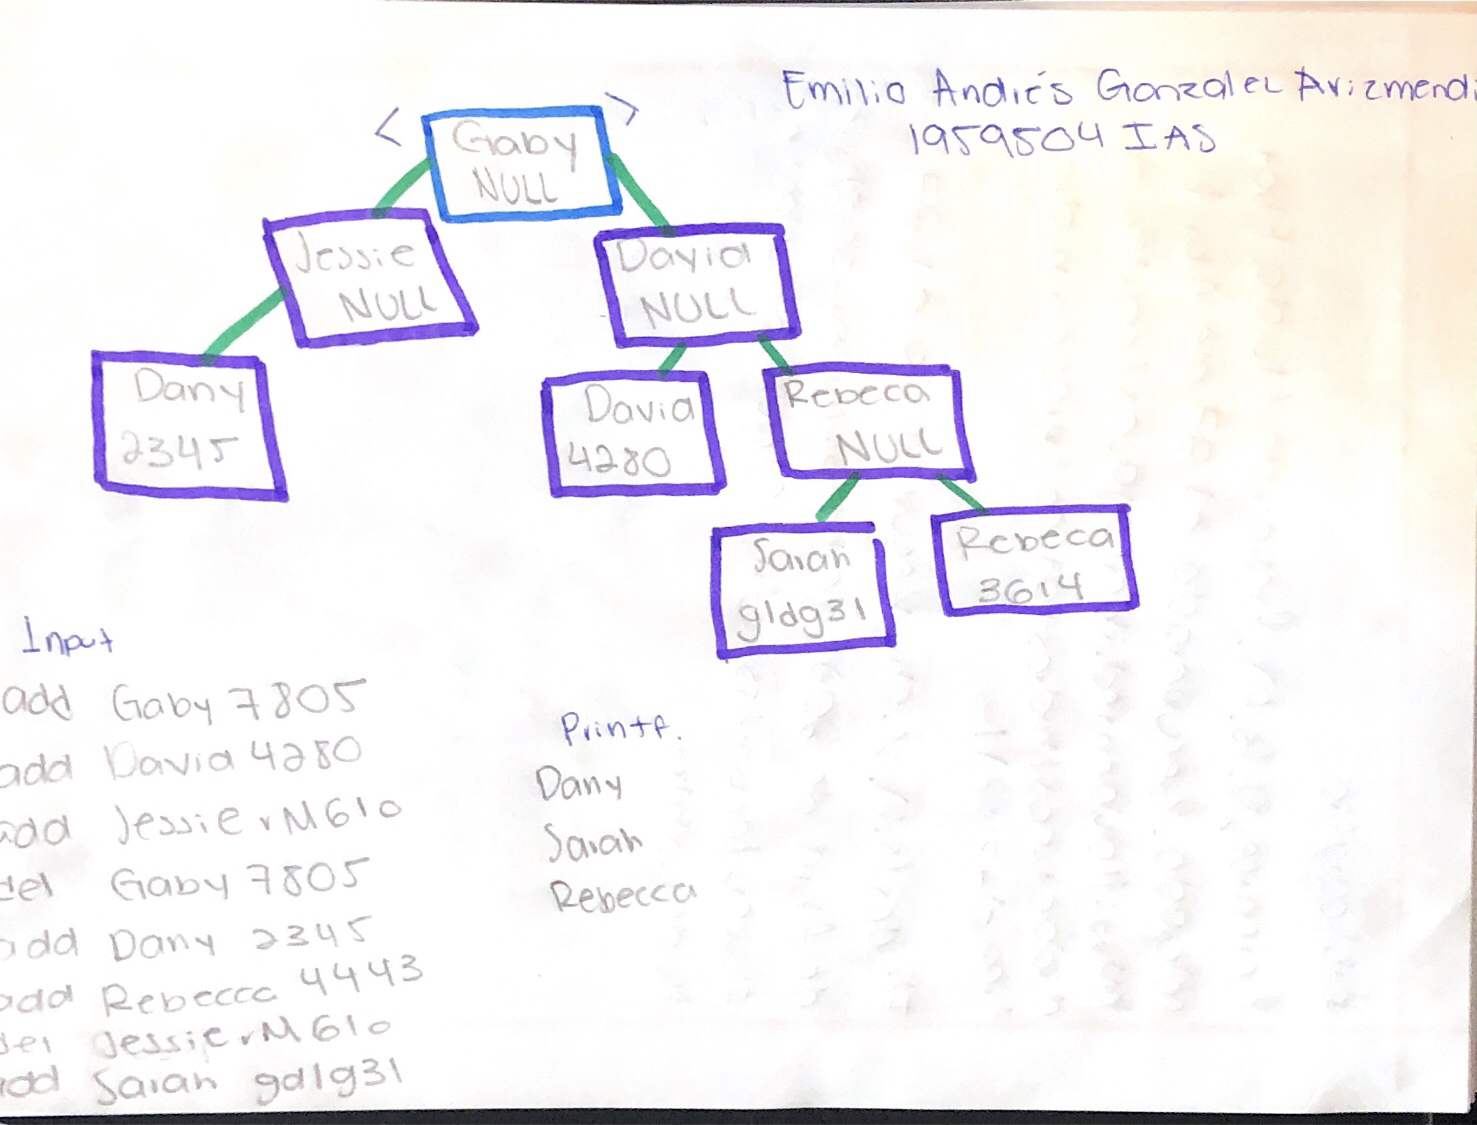 Emilio Andrés Gonzalez Arizmendi
1959504 IAS
< Gaby >
NULL
Jessie
NULL
David
NULL
Dany
2345
David
4280
Rebeca
NULL
Sarah
gldg31
Rebeca
3614
Input
add Gaby 7805
add David 4280
add Jessie vM610
del Gaby 7805
add Dany 2345
add Rebecca 4443
del Jessie vM610
add Sarah gdlg31
Printf.
Dany
Sarah
Rebecca